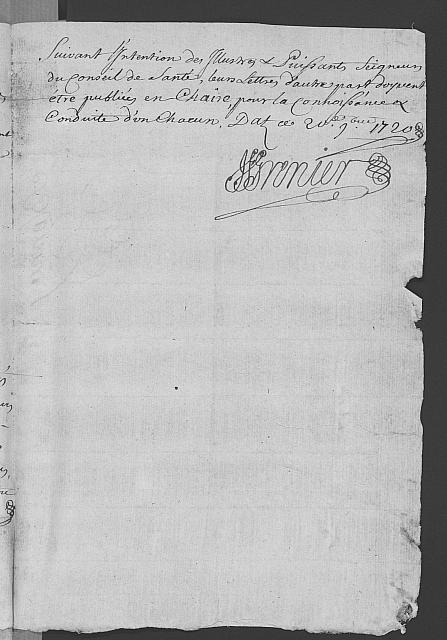 Suivant l'Intention des Illustres & Puissants Seigneurs
du Conseil de Santé, leurs Lettres d'autre part doivent
étre publiées en Chaire, pour la Connoissance &
Conduite d'vn Chacun. Dat. ce 20.e 9.bre 1720
Grenier